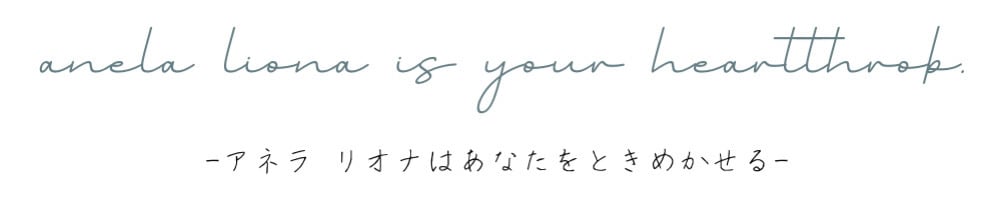 anela liona is your heartthrob.
-アネラ リオナはあなたをときめかせる-